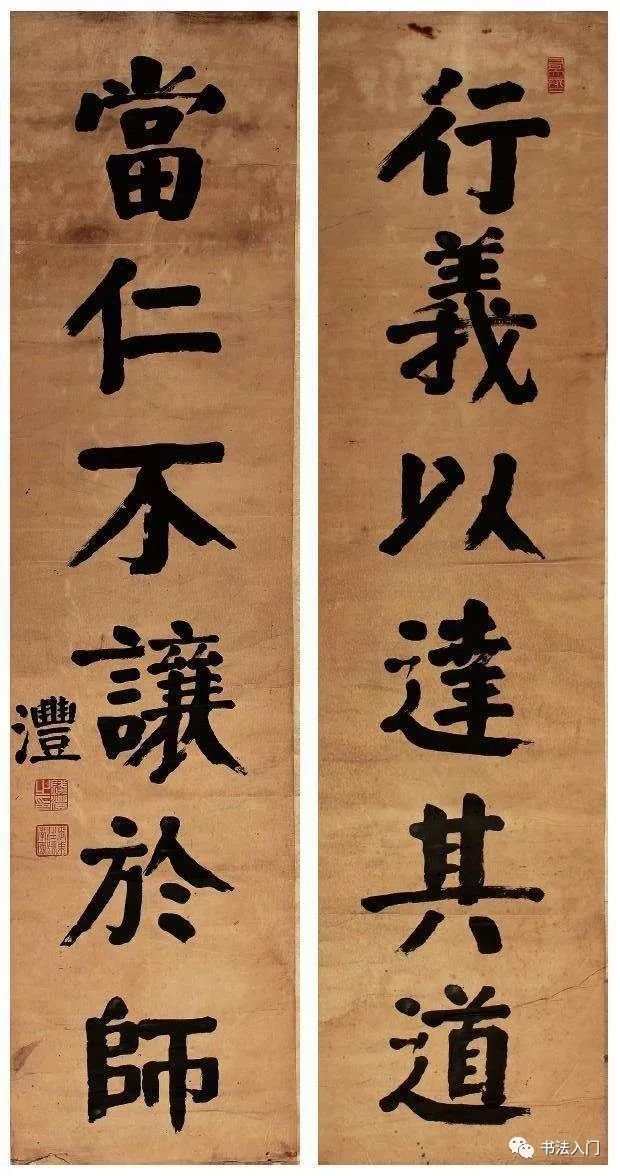 行義以達其道
當仁不讓於師
灃
书法入门